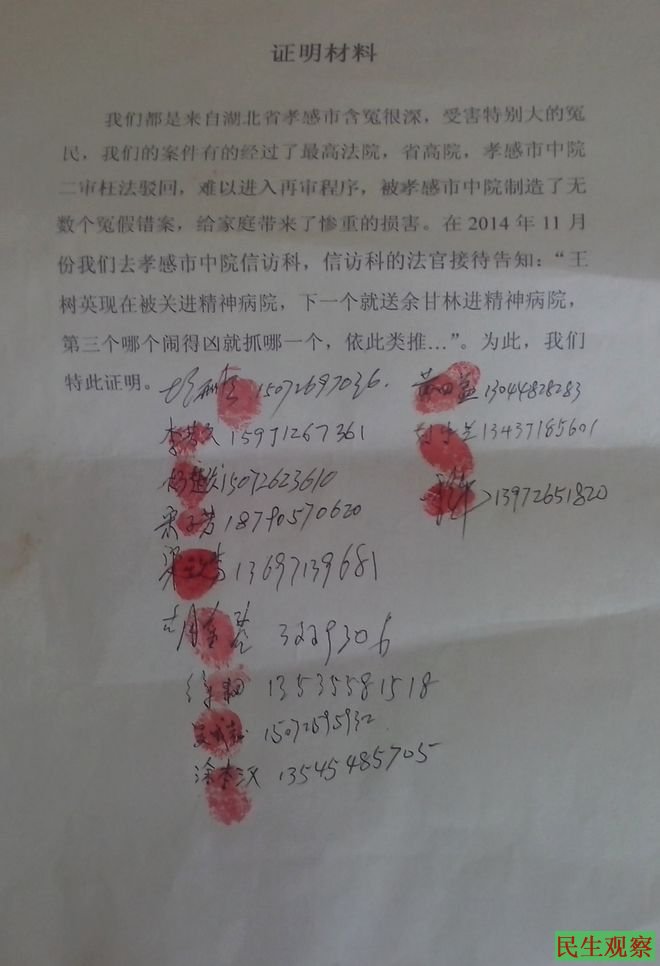 证明材料
我们都是来自湖北省孝感市含冤很深，受害特别大的冤
民，我们的案件有的经过了最高法院，省高院，孝感市中院
二审枉法驳回，难以进入再审程序，被孝感市中院制造了无
数个冤假错案，给家庭带来了惨重的损害。在 2014 年 11 月
份我们去孝感市中院信访科，信访科的法官接待告知：“王
树英现在被关进精神病院，下一个就送余甘林进精神病院，
第三个哪个闹得凶就抓哪一个，依此类推…”。为此，我们
特此证明。
15072697036
13044828283
15971267361
13437185601
15072623610
13972651820
18790570620
13697139681
3229306
13535581518
15072695932
13545485705
民生观察